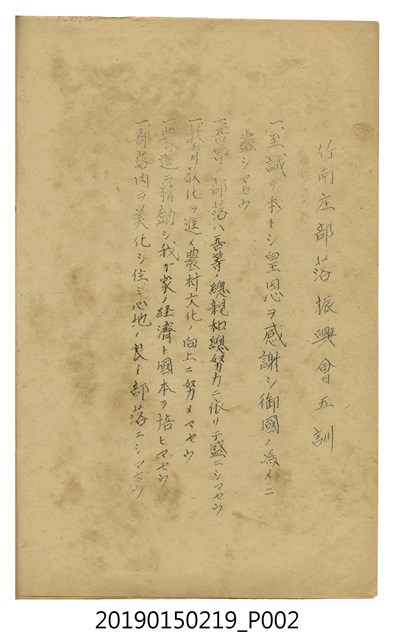 竹南庄部落振興會五訓
一、至誠ヲ本トシ皇恩ヲ感謝シ御國ノ為メニ
盡シマセウ
一、吾等ノ部落ハ吾等ノ總親和總努力ニ依リテ盛ニシマセウ
一、教化ヲ進メ農村文化ノ向上ニ努メマセウ
一、農道ニ精勤シ我ガ家ノ經濟ト國本ヲ培ヒマセウ
一、部落內ヲ美化シ住ミ心地ノ良イ部落ニシマセウ
20190150219_P002